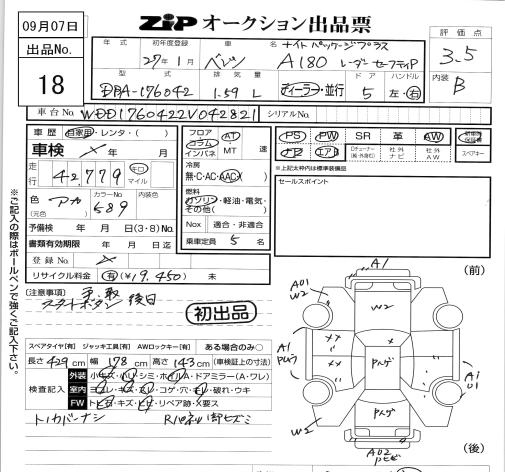 09月07日
ZIP オークション出品票
出品No.
18
年式 初年度登録 車名 ナイトパッケージプラス
27年1月 ベンツ A180 レーダーセーフティP
型式 排気量 ドア ハンドル
DBA-176042 1.59 L ディーラー・並行 5 左・右
評価点
3.5
内装 B
車台No. WDD1760422V042821 シリアルNo.
車歴 自家用・レンタ・( )
車検 × 年 月
走行 42,779 キロ マイル
色 (元色) アカ カラーNo. 589 内装色
予備検 年 月 日(3・8)No.
書類有効期限 年 月 日迄
登録No. ×
リサイクル料金 有(¥19,450) 未
フロア コラム インパネ AT ・MT 速
冷房 無・C・AC・AAC
燃料 ガソリン・軽油・電気・その他( )
Nox 適合・非適合
乗車定員 5 名
PS PW SR 革 AW
ナビ エアB Dチューナー(純・外含む) 社外ナビ 社外AW
新車時保証書 スペアキー
※上記太枠内は標準装備品
セールスポイント
(注意事項)
スタートボタン 後日
初出品
スペアタイヤ[有] ジャッキ工具[有] AWロックキー[有] ある場合のみ○
長さ 429 cm 幅 178 cm 高さ 143 cm (車検証上の寸法)
検査記入
外装 小キズ・ハリ・シミ・ホイルA・ドアミラー(A・ワレ)
室内 ヨゴレ・キズ・スレ・コゲ・穴・キレ・破れ・ウキ
FW トビ石・キズ・ヒビ・リペア跡・X要ス
トノカバーナシ Rパネル御ヒズミ
※ご記入の際はボールペンで強くご記入下さい。
(前)
A1
A01
W2
W2
A1
××
××
Pハゲ
A1
01
Pハゲ
W2
A02
(後)